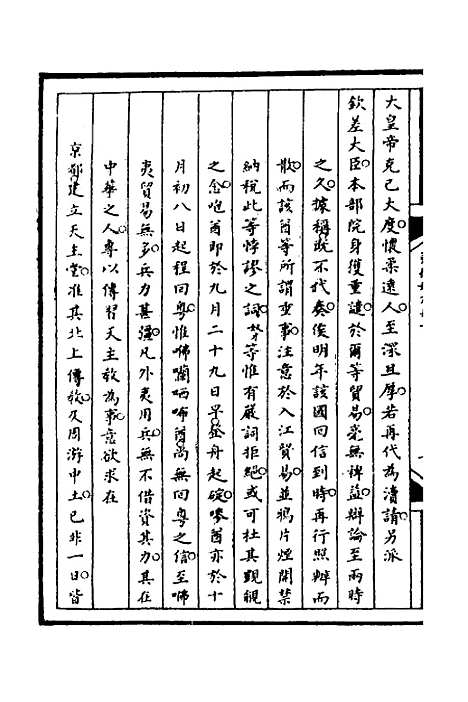 大皇帝克己大度懷柔遠人至深且厚若再代為瀆請另派
欽差大臣本部院身獲重譴於爾等貿易毫無裨益辯論至兩時
之久據稱既不代奏俟明年該國回信到時再行照辦而
散而該酋等所謂重事注意於入江貿易並鴉片煙開禁
納稅此等悖謬之詞等惟有嚴詞拒絕或可杜其覬覦
之念咆酋即於九月二十九日早登舟起碇嘜酋亦於十
月初八日起程回粵惟咈囒哂咘酋尚無回粵之信至咈
夷貿易無多兵力甚強凡外夷用兵無不借資其力其在
中華之人專以傳習天主教為事意欲求在
京都建立天主堂准其北上傳教及周游中土已非一日皆